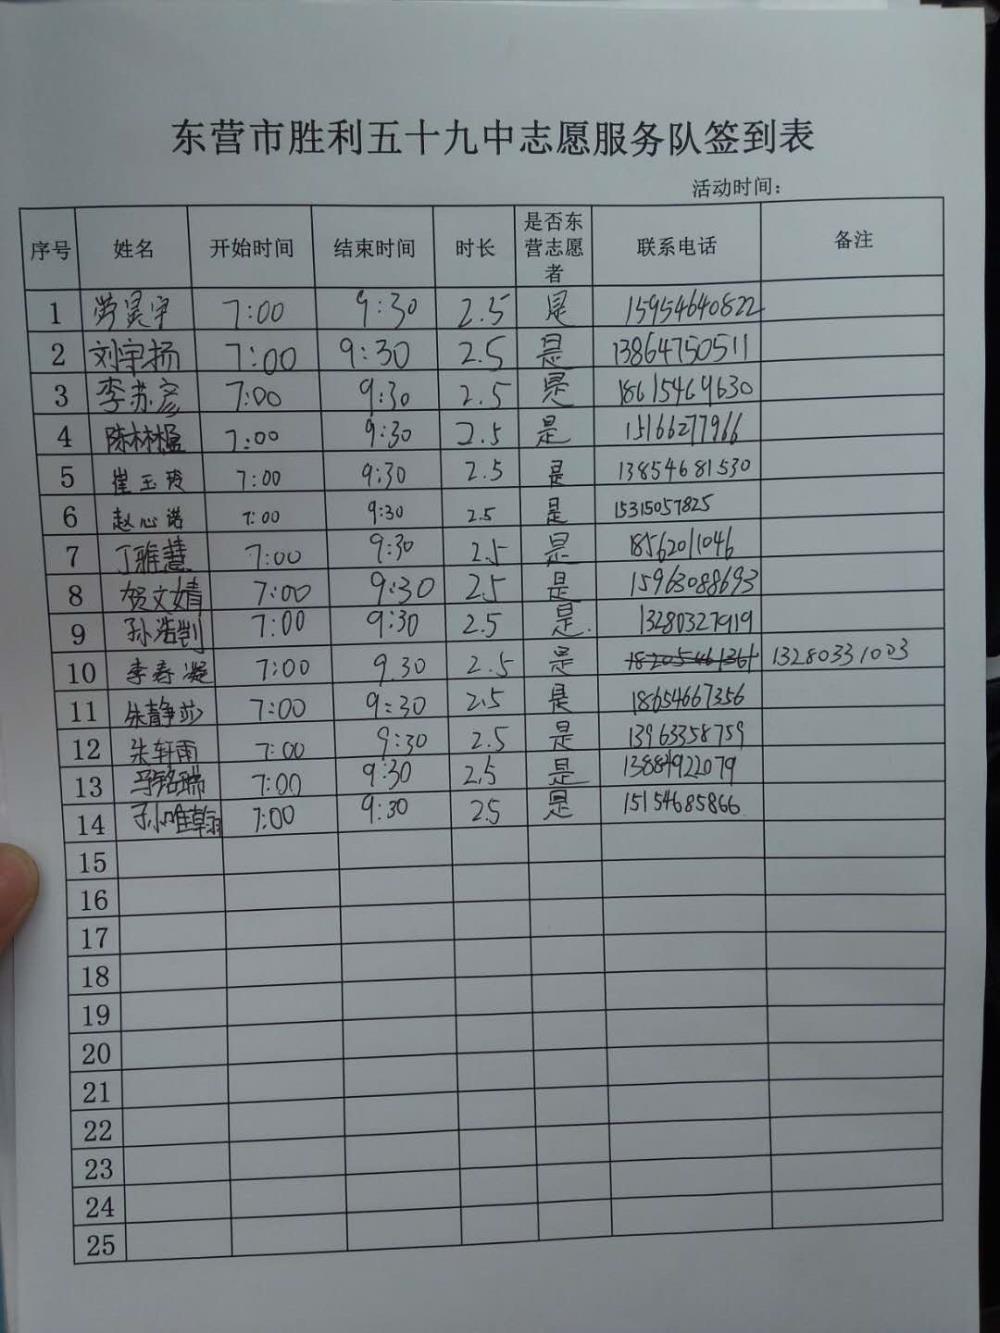 东营市胜利五十九中志愿服务队签到表
活动时间：
序号 姓名 开始时间 结束时间 时长 是否东营志愿者 联系电话 备注
1 劳昊宇 7:00 9:30 2.5 是 15954640822
2 刘宇扬 7:00 9:30 2.5 是 13864750511
3 李苏彦 7:00 9:30 2.5 是 18615469630
4 陈林楹 7:00 9:30 2.5 是 15166277966
5 崔玉玫 7:00 9:30 2.5 是 13854681530
6 赵心诺 7:00 9:30 2.5 是 15315057825
7 丁雅慧 7:00 9:30 2.5 是 18562011046
8 贺文婧 7:00 9:30 2.5 是 15963088693
9 孙浩凯 7:00 9:30 2.5 是 13280327919
10 李春凝 7:00 9.30 2.5 是 18205461361 13280331003
11 朱静莎 7:00 9:30 2.5 是 18654667356
12 朱轩雨 7:00 9:30 2.5 是 13963358759
13 马铭瑞 7:00 9:30 2.5 是 13884922079
14 孙唯翰 7:00 9:30 2.5 是 15154685866
15
16
17
18
19
20
21
22
23
24
25